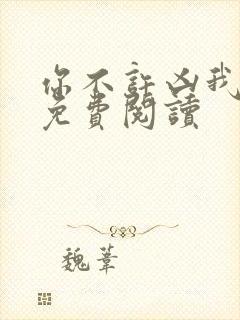 你不許凶我
免費閱讀
魏葦